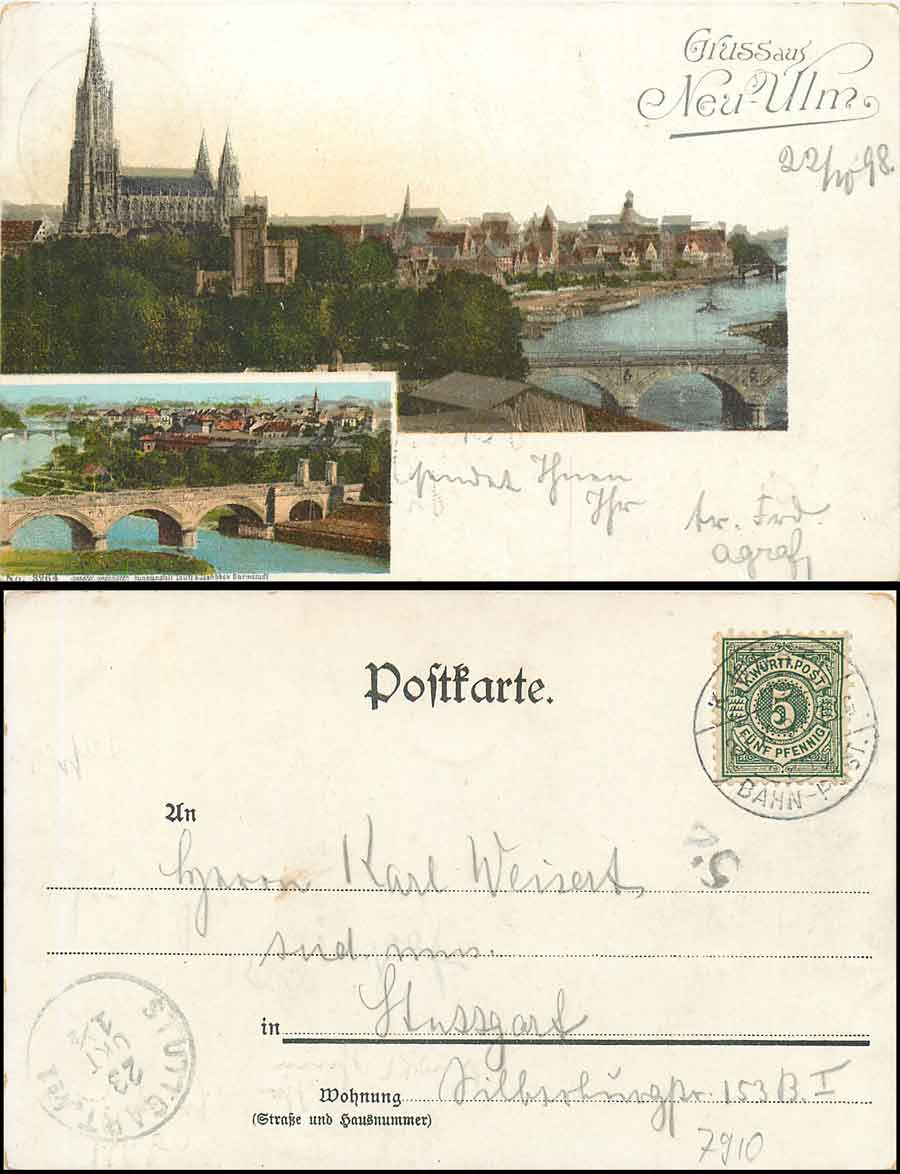 Gruss aus
Neu-Ulm
22/10 98.
sendet Ihnen
Ihr
tr. Frd.
No. 3264
Postkarte.
K. WÜRTT. POST
5
FÜNF PFENNIG
BAHN-POST.
An
Herrn Karl Weisert
in Stuttgart
Wohnung Silberburgstr. 153 B. I
(Straße und Hausnummer)
STUTTGART
23
OKT
7910